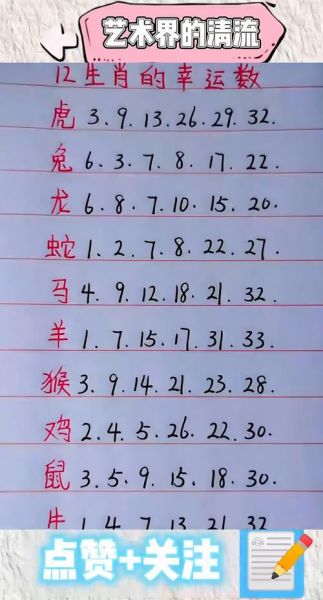 艺术界的清流
12生肖的幸运数
虎 3.9.13.26.29.32.
兔 6.3.7.8.17.22.
龙 6.8.7.10.15.20.
蛇 1.2.7.8.22.27.
马 4.9.12.18.21.32.
羊 1.7.15.17.31.33.
猴 3.9.14.21.23.28.
鸡 2.4.5.26.22.30.
鼠 3.5.9.15.18.30.
牛 1.4.7.13.21.32
点赞+关注